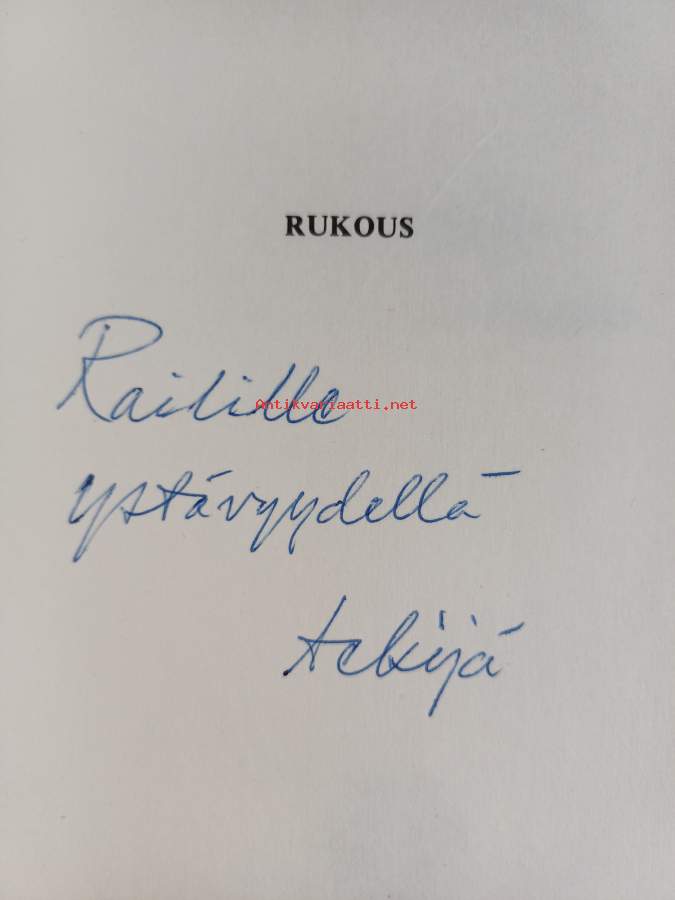 RUKOUS
Railille
Antikvariaatti.net
ystävyydellä
tekijä